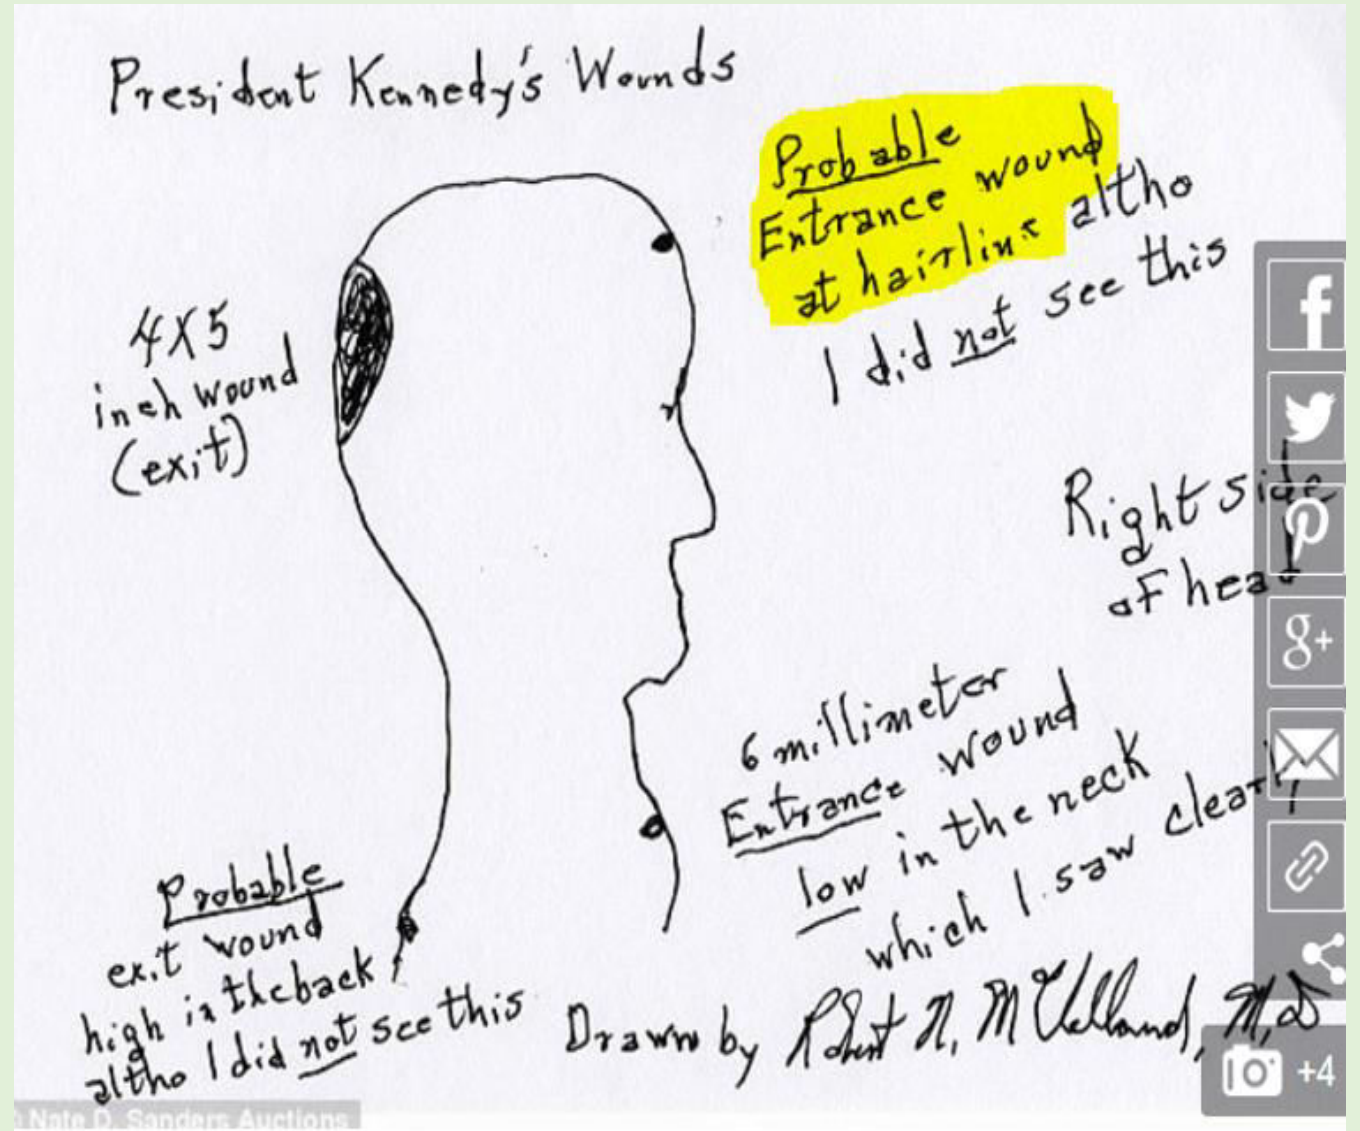 President Kennedy's Wounds
Probable
Entrance wound
at hairline altho
I did not see this
4X5
inch wound
(exit)
Right side
of head
6 millimeter
Entrance wound
low in the neck
which I saw clearly
Probable
exit wound
high in the back
altho I did not see this
Drawn by Robert N. McClelland, M.D
f
g+
+4
Nate D. Sanders Auctions